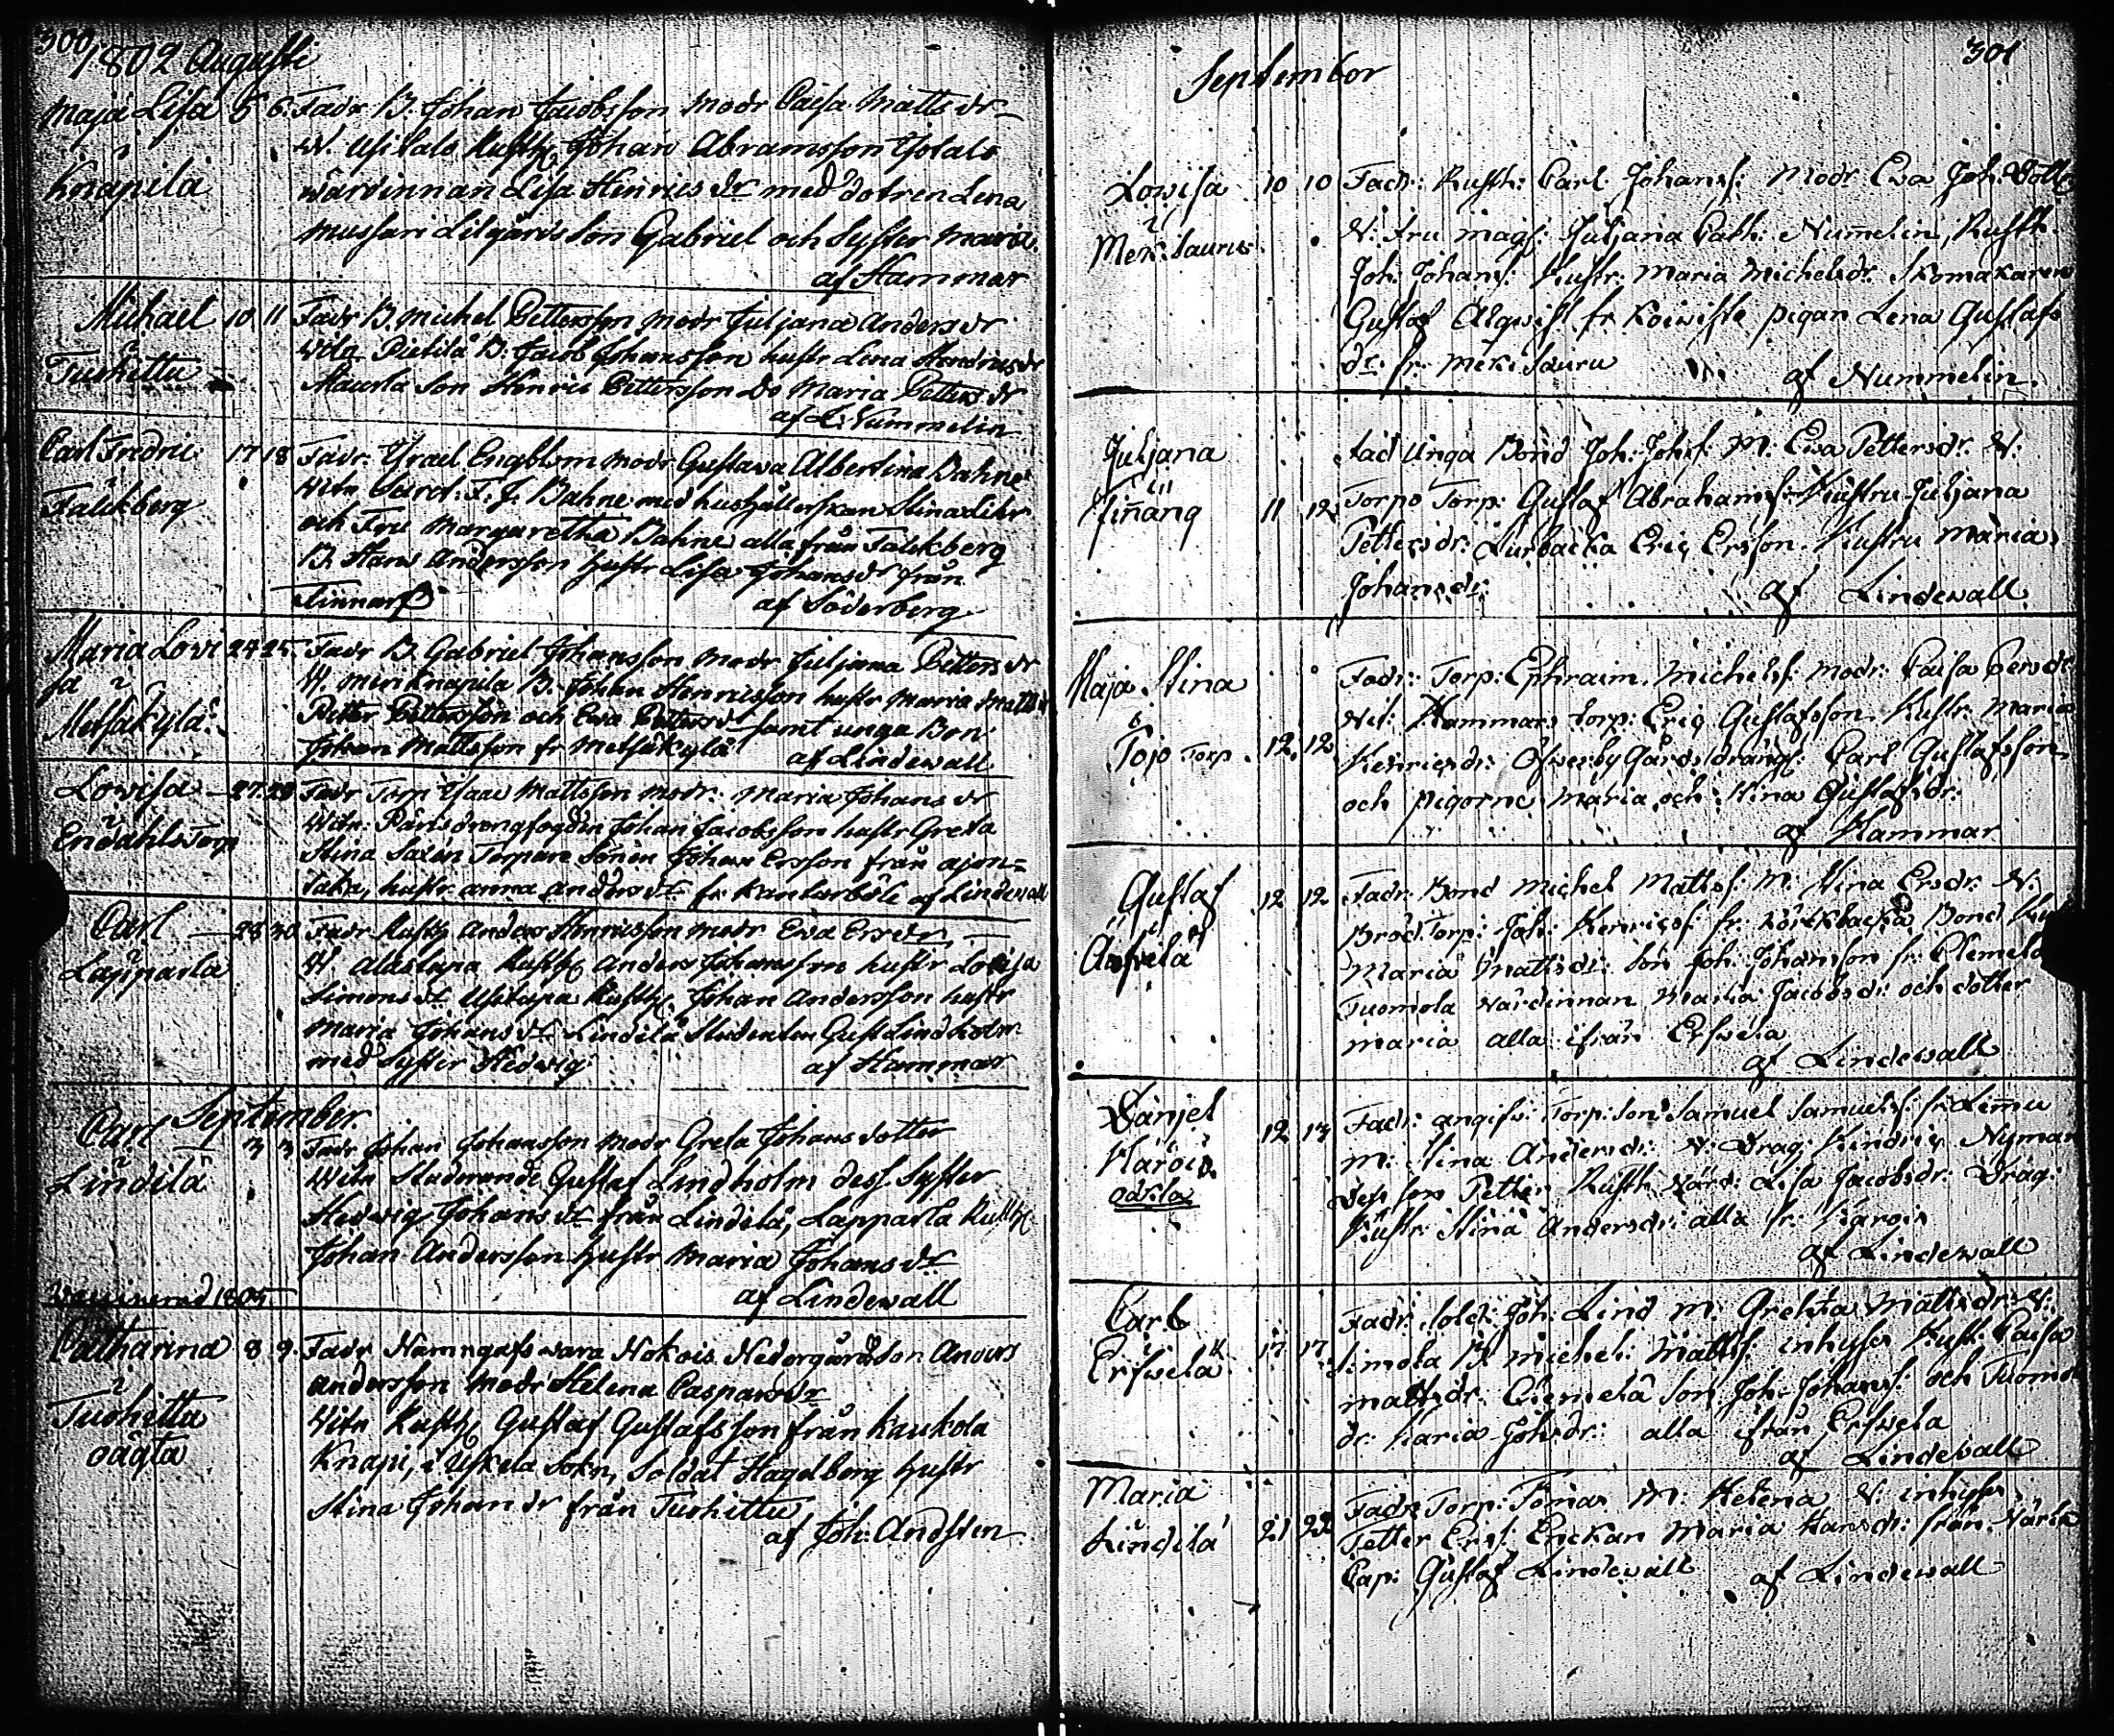 300
1802 Augusti
Maja Lisa 5 6. Fadr B. Johan Jacobsson modr Caisa Matts dr
W. Usitalo Rusth. Johan Abramsson Yotalo
Knapila wärdinnan Lisa Hinrics dr med dotren Lena
Mussari Lilgårds son Gabriel och Syster Maria.
af Hammar
Michael 10 11 Fadr B. Michel Pettersson modr Juljana Anders dr
Tuohittu Witn Pietilä B. Jacob Johansson hustr Lena Hendrics dr
Maurla Son Hinric Pettersson do Maria Petters dr
af L. Nummelin
Carl Fredric 17 18 Fadr. Israel Engblom modr Gustava Albertina Bahne
Falckberg Witn F. J. Bahne med hushållerskan Stina
och Fru Margaretha Bahne alla från Falckberg
B. Hans Andersson hustr Lisa Johans dr från
Finnarf af Söderberg
Maria Lovi 24 25 Fadr B. Gabriel Johansson modr Juljana Petters dr
sa W. Knapila B. Johan Henricsson hustr Maria Matts dr
Metsäkylä Petter Pettersson och Ewa Petters dr samt unga Bon
Johan Mattsson fr Metsäkylä af Lindewall
Lowisa 27 29 Fadr Torp Isaac Mattsson modr. Maria Johans dr
Endahls Torp Witn: drengfogden Johan Jacobsson hustr Greta
Stina Saxén Torpare Sonen Johan Ersson från ajon=
saka, hustr. anna anders dr fr Kantarböle af Lindewall
Carl 28 30 Fadr Rusth Anders Henricsson modr Ewa Ers dr
Lapparla W. alastapa Rusth anders Johansson hustr Lovisa
Simons dr Usitapa Rusth. Johan Andersson hustr
Maria Johans dr Lindilä Studenten Gust Lindholm
med Syster Hedwig af Hammar
September.
Carl 3 3 Fadr Johan Johansson modr Greta Johans dotter
Lindilä Witn Studerande Gustaf Lindholm dess Syster
Hedwig Johans dr från Lindilä, Lapparla Rusth
Johan Andersson hustr Maria Johans dr
Waccinerad 1805. af Lindewall
Catharina 8 9. Fadr Namngifs wara Hokois Nedergårds son Anders
andersson modr Helena Caspars dr
Tuohittu Witn Rusth Gustaf Gustafsson från Kaukola
oägta Knapi, i Uskela Sokn, Soldat Hagelberg hustr
Stina Johans dr från Tuohittu
af Joh: Andsten
301
September
Lowisa 10 10 Fadr: Rusth: Carl Johanss: Modr Eva Joh: Dottr
Meri Sauru W: Fru mags: Juljana Cath: Nummelin, Rusth
Joh: Johanss: Hustr: Maria Michelsdr. Skomakaren
Gustaf Algwist fr Koiviste pigan Lena Gustafs
dr: fr: Meri Sauru af Nummelin.
Juljana Fad Unga Bond Joh: Johs: M. Eva Pettersdr. W:
Finnäng 11 12 Torpo Torp: Gustaf Abrahamss: Hustru Juljana
Pettersdr: Lurbacka Eric Ersson. Hustru Maria
Johansdr: af Lindewall.
Maja Stina Fadr: Torp: Ephraim. Michelss: modr: Caisa Persdr
Wit: Hammars torp: Eric Gustafsson. Hustr: Maria
Tojo Torp. 12. 12. Henricsdr: Öfwerby Gårds dräng: Carl Gustafsson
och pigorne Maria och Stina Gustafsdr:
af Hammar
Gustaf 12 12 Fadr: Bond Michel Mattss: M: Stina Ersdr: W:
Brod. Torp: Joh: Henricss: fr: Bond
Maria Mattsdr: Son Joh: Johansson fr: Clemelä
Tuomola Wärdinnan Maria Jacobsdr: och dotter
Maria alla ifrån Erfwelä
af Lindewall
Danjel 12 13 Fadr: angifw: Torp: Son Samuel Samuelss: fr: Lemu
Karois M: Stina Andersdr: W: Drag: Hindric Nyman
odöla Dess son Petter Rusth Wärd: Lisa Jacobsdr: Drag:
Hustr: Stina Andersdr: alla fr: Karois
af Lindewall
Carl Fadr: Sold: Joh: Lind M: Grehta Mattsdr: W:
Erfwelä 17 17 Simola B Michel: Mattss: inhyses Hust: Caisa
Mattsdr: Clemelä Son Joh: Johanss: och Tuomol
dr: Karia Johsdr: alla ifrån Erfwela
af Lindewall
Maria Fadr Torp: Tomas M: Helena W: inhyses
Lindilä 21 22 Petter Erss: Enckan Maria Hansdr: från
Cap: Gustaf Lindewall af Lindewall